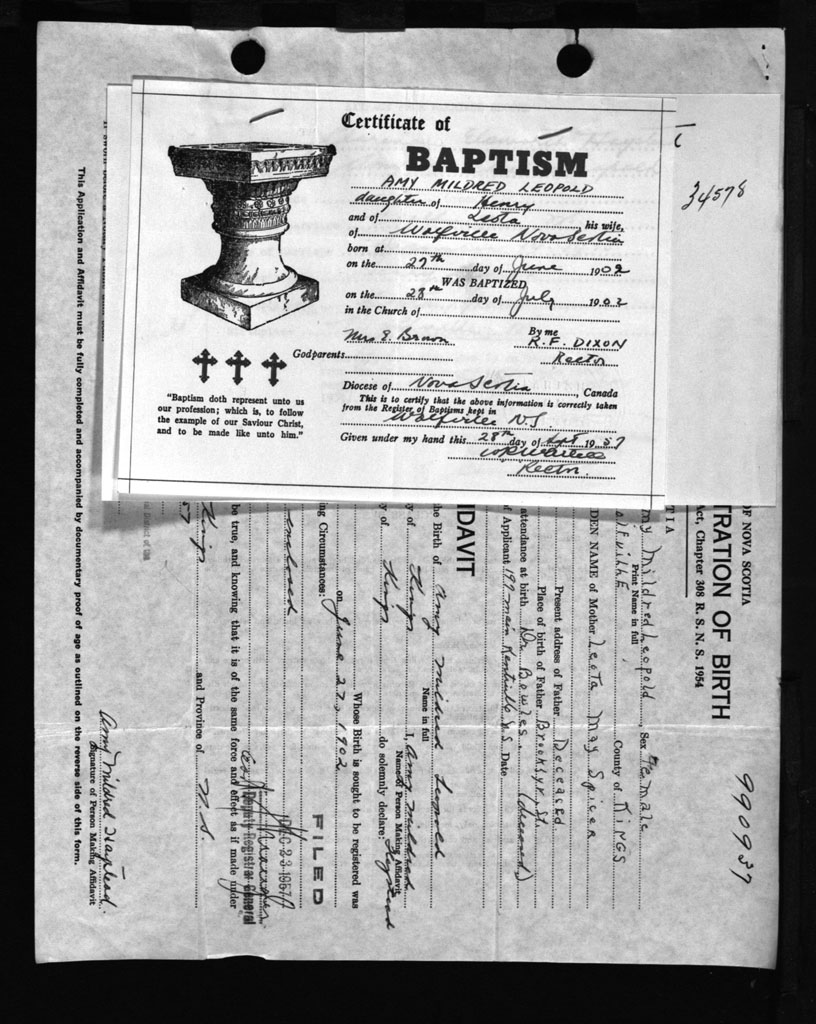 Certificate of
BAPTISM
AMY MILDRED LEOPOLD
daughter of Henry
and of Leola his wife,
of Wolfville Nova Scotia
born at
on the 27th day of June 1902
WAS BAPTIZED
on the 28th day of July 1902
in the Church of
Mrs E. Brown By me
R. F. DIXON
Godparents Rector
Diocese of Nova Scotia, Canada
This is to certify that the above information is correctly taken
from the Register of Baptisms kept in
Wolfville N.S.
Given under my hand this 28th day of Sept 1957
Rector.
"Baptism doth represent unto us
our profession; which is, to follow
the example of our Saviour Christ,
and to be made like unto him."
34578
990937
OF NOVA SCOTIA
TRATION OF BIRTH
Act, Chapter 308 R. S. N. S. 1954
TIA
my Mildred Leopold, Sex Female
Print Name in full
olfville County of KINGS
DEN NAME of Mother Leota May Spicer
Present address of Father Deceased
Place of birth of Father Brooklyn, St.
attendance at birth Dr Bowles. (deceased)
f Applicant 199 Main Kentville N.S. Date
IDAVIT
he Birth of Amy Mildred Leopold
Name in full
y of Kings I, Amy Mildred
Name of Person Making Affidavit
y of Kings do solemnly declare: Hagstead
Whose Birth is sought to be registered was
on June 27, 1902
ing Circumstances:
FILED
enclosed
DEC 23 1957
Deputy Registrar General
be true, and knowing that it is of the same force and effect as if made under
Kings and Province of N.S.
57
Amy Mildred Hagstead
Signature of Person Making Affidavit
This Application and Affidavit must be fully completed and accompanied by documentary proof of age as outlined on the reverse side of this form.